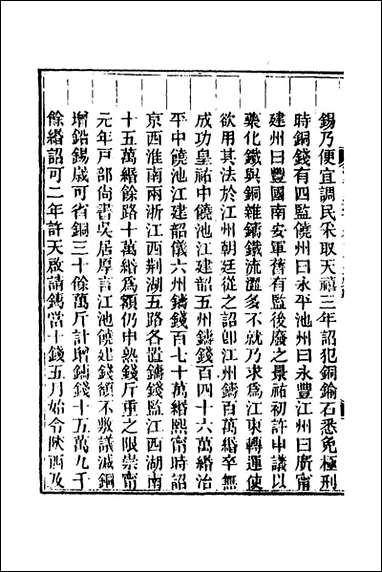 錫乃便宜調民采取天禧三年詔犯銅鍮石悉免極刑
時銅錢有四監饒州曰永平池州曰永豐江州曰廣甯
建州曰豐國南安軍舊有監後廢之景祐初許申議以
藥化鐵與銅雜鑄鐵流澀多不就乃求爲江東轉運使
欲用其法於江州朝廷從之詔卽江州鑄百萬緡卒無
成功皇祐中饒池江建韶五州鑄錢百四十六萬緡治
平中饒池江建韶儀六州鑄錢百七十萬緡熙甯時詔
京西淮南兩浙江西荆湖五路各置鑄錢監江西湖南
十五萬緡餘路十萬緡爲額仍申熱錢斤重之限崇甯
元年戸部尚書吳居厚言江池饒建錢額不敷議減銅
增鉛錫歲可省銅三十餘萬斤計增鑄錢十五萬九千
餘緡詔可二年許天啟請鑄當十錢五月始令陝西及